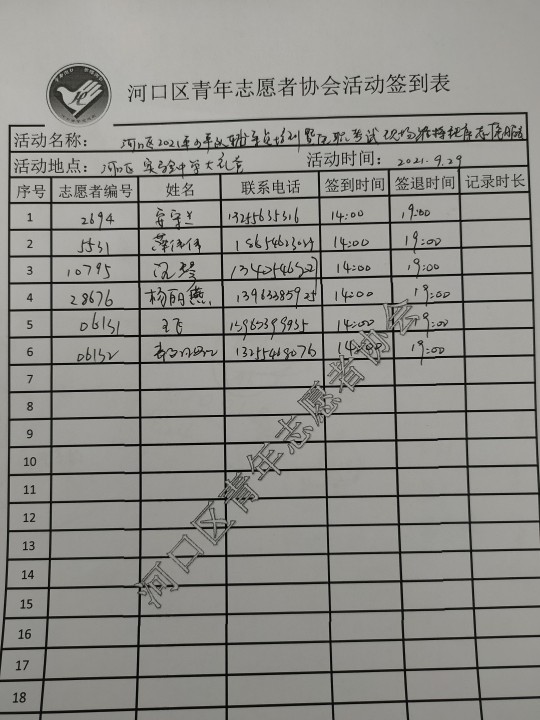 河口区青年志愿者协会活动签到表
活动名称: 河口区2021年 考试现场维持秩序志愿服务
活动地点: 河口区实验中学大礼堂 活动时间: 2021.9.29
序号 志愿者编号 姓名 联系电话 签到时间 签退时间 记录时长
1 2694 13255635316 14:00 19:00
2 5531 14:00 19:00
3 10795 14:00 19:00
4 28676 杨丽燕 14:00 19:00
5 06131 王飞 14:00 19:00
6 06132 13255468076 14:00 19:00
7
8
9
10
11
12
13
14
15
16
17
18
河口区青年志愿者协会